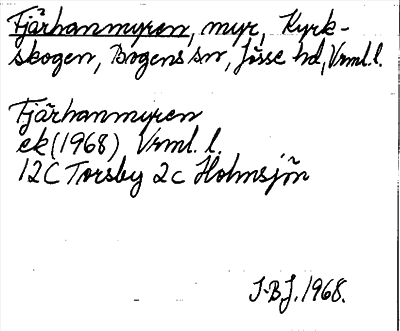 Fjärhanmyren, myr, Kyrk-
skogen, Bogens sn, Jösse hd, Vrml. l.
Fjärhanmyren
ek (1968) Vrml. l.
12C Torsby 2c Holmsjön
J-B.J. 1968.